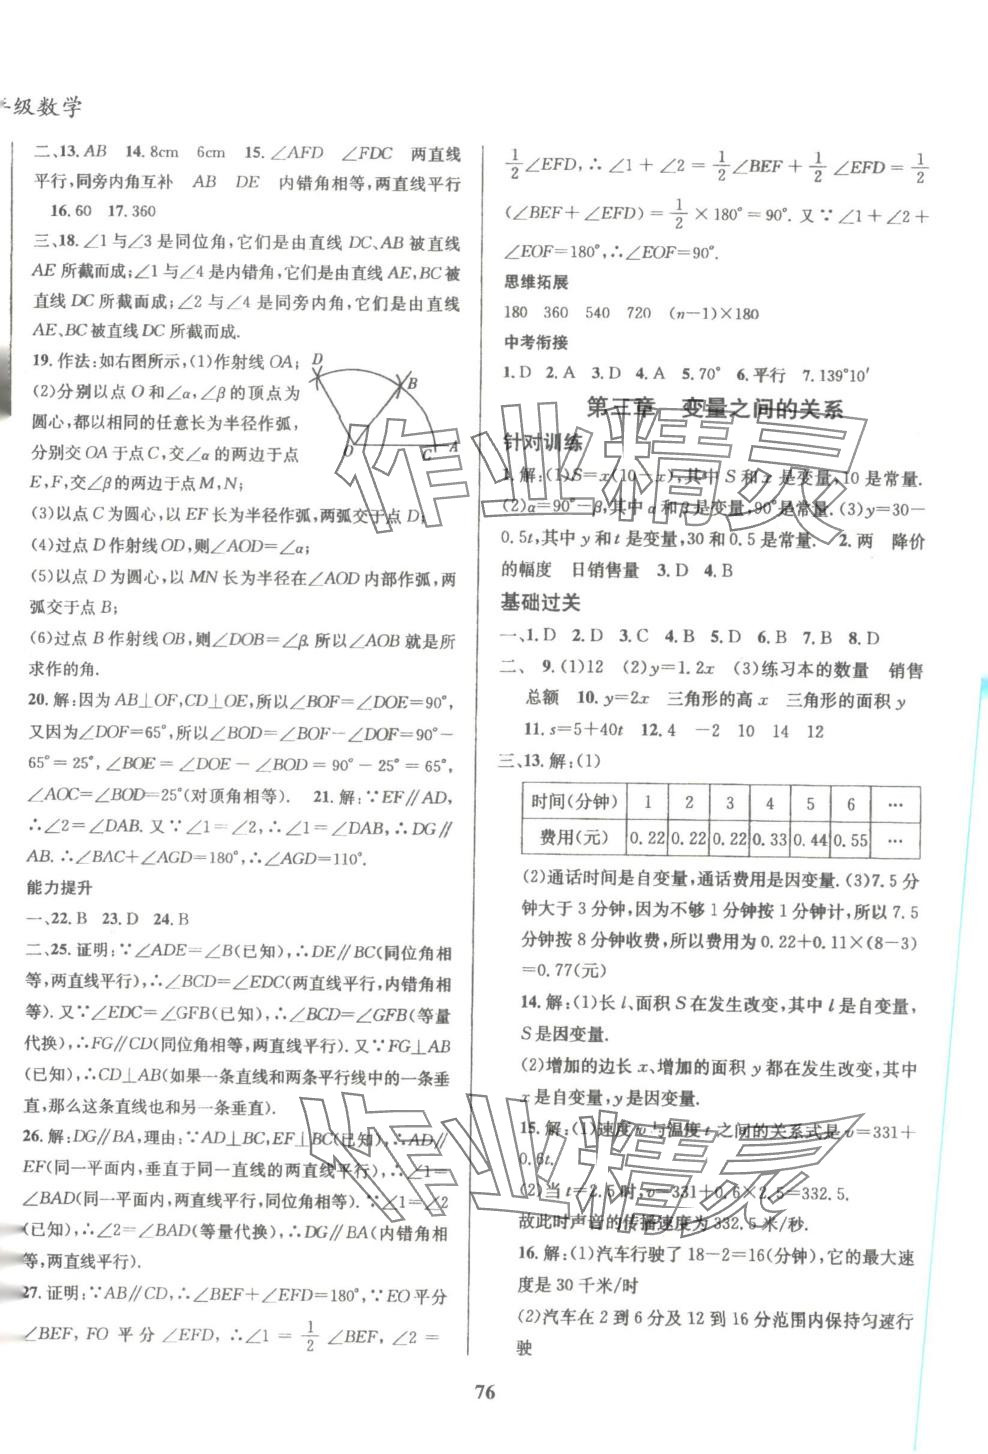 级数学
二、13. AB 14. 8cm 6cm 15. ∠AFD ∠FDC 两直线
平行,同旁内角互补 AB DE 内错角相等,两直线平行
16. 60 17. 360
三、18. ∠1与∠3是同位角,它们是由直线 DC、AB 被直线
AE 所截而成;∠1与∠4是内错角,它们是由直线 AE,BC 被
直线 DC 所截而成;∠2与∠4是同旁内角,它们是由直线
AE、BC 被直线 DC 所截而成.
19. 作法:如右图所示,(1)作射线 OA;
(2)分别以点 O 和∠α,∠β的顶点为
圆心,以相同的任意长为半径作弧,
分别交 OA 于点 C,交∠α的两边于点
E,F,交∠β的两边于点 M,N;
(3)以点 C 为圆心,以 EF 长为半径作弧,两弧交于点 D;
(4)过点 D 作射线 OD,则∠AOD=∠α;
(5)以点 D 为圆心,以 MN 长为半径在∠AOD 内部作弧,两
弧交于点 B;
(6)过点 B 作射线 OB,则∠DOB=∠β.所以∠AOB 就是所
求作的角.
D
B
O
C
A
20. 解:因为 AB⊥OF,CD⊥OE,所以∠BOF=∠DOE=90°,
又因为∠DOF=65°,所以∠BOD=∠BOF-∠DOF=90°-
65°=25°,∠BOE=∠DOE-∠BOD=90°-25°=65°,
∠AOC=∠BOD=25°(对顶角相等). 21. 解:∵EF∥AD,
∴∠2=∠DAB. 又∵∠1=∠2,∴∠1=∠DAB,∴DG∥
AB. ∴∠BAC+∠AGD=180°,∴∠AGD=110°.
能力提升
一、22. B 23. D 24. B
二、25. 证明:∵∠ADE=∠B(已知),∴DE∥BC(同位角相
等,两直线平行),∴∠BCD=∠EDC(两直线平行,内错角相
等). 又∵∠EDC=∠GFB(已知),∴∠BCD=∠GFB(等量
代换),∴FG∥CD(同位角相等,两直线平行). 又∵FG⊥AB
(已知),∴CD⊥AB(如果一条直线和两条平行线中的一条垂
直,那么这条直线也和另一条垂直).
26. 解:DG∥BA,理由:∵AD⊥BC,EF⊥BC(已知),∴AD∥
EF(同一平面内,垂直于同一直线的两直线平行),∴∠1=
∠BAD(同一平面内,两直线平行,同位角相等). ∵∠1=∠2
(已知),∴∠2=∠BAD(等量代换),∴DG∥BA(内错角相
等,两直线平行).
27. 证明:∵AB∥CD,∴∠BEF+∠EFD=180°,∵EO 平分
∠BEF, FO 平分∠EFD, ∴∠1 = 1/2 ∠BEF, ∠2 =
1/2∠EFD,∴∠1+∠2=1/2∠BEF+1/2∠EFD=1/2
(∠BEF+∠EFD)=1/2×180°=90°. 又∵∠1+∠2+
∠EOF=180°,∴∠EOF=90°.
思维拓展
180 360 540 720 (n-1)×180
中考衔接
1. D 2. A 3. D 4. A 5. 70° 6. 平行 7. 139°10′
第三章 变量之间的关系
针对训练
1. 解:(1)S=x(10-x),其中 S 和 x 是变量,10 是常量.
(2)α=90°-β,其中 α 和 β 是变量,90°是常量. (3)y=30-
0.5t,其中 y 和 t 是变量,30 和 0.5 是常量. 2. 两 降价
的幅度 日销售量 3. D 4. B
基础过关
一、1. D 2. D 3. C 4. B 5. D 6. B 7. B 8. D
二、9. (1)12 (2)y=1.2x (3)练习本的数量 销售
总额 10. y=2x 三角形的高 x 三角形的面积 y
11. s=5+40t 12. 4 -2 10 14 12
三、13. 解:(1)
时间(分钟) 1 2 3 4 5 6 …
费用(元) 0.22 0.22 0.22 0.33 0.44 0.55 …
(2)通话时间是自变量,通话费用是因变量. (3)7.5 分
钟大于 3 分钟,因为不够 1 分钟按 1 分钟计,所以 7.5
分钟按 8 分钟收费,所以费用为 0.22+0.11×(8-3)
=0.77(元)
14. 解:(1)长 l、面积 S 在发生改变,其中 l 是自变量,
S 是因变量.
(2)增加的边长 x、增加的面积 y 都在发生改变,其中
x 是自变量,y 是因变量.
15. 解:(1)速度 v 与温度 t 之间的关系式是 v=331+
0.6t.
(2)当 t=2.5 时,v=331+0.6×2.5=332.5.
故此时声音的传播速度为 332.5 米/秒.
16. 解:(1)汽车行驶了 18-2=16(分钟),它的最大速
度是 30 千米/时
(2)汽车在 2 到 6 分及 12 到 16 分范围内保持匀速行
驶
76
作业精灵
作业精灵